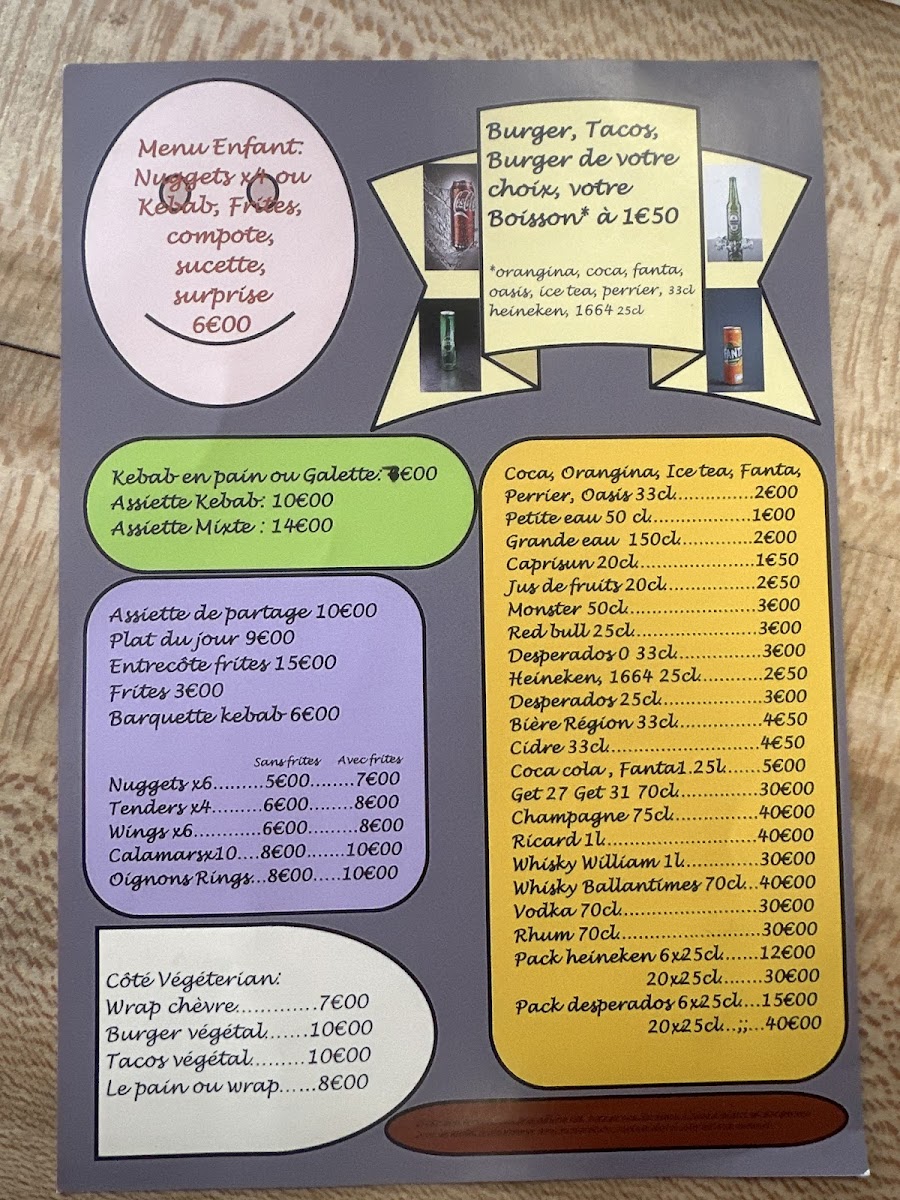 Menu Enfant:
Nuggets x4 ou
Kebab, Frites,
compote,
sucette,
surprise
6€00
Burger, Tacos,
Burger de votre
choix, votre
Boisson* à 1€50
*orangina, coca, fanta,
oasis, ice tea, perrier, 33cl
heineken, 1664 25cl
Kebab en pain ou Galette: €00
Assiette Kebab: 10€00
Assiette Mixte : 14€00
Assiette de partage 10€00
Plat du jour 9€00
Entrecôte frites 15€00
Frites 3€00
Barquette kebab 6€00
Sans frites Avec frites
Nuggets x6.........5€00........7€00
Tenders x4.........6€00........8€00
Wings x6............6€00.........8€00
Calamarsx10....8€00.......10€00
Oignons Rings...8€00.....10€00
Côté Végéterian:
Wrap chèvre.............7€00
Burger végétal.......10€00
Tacos végétal.........10€00
Le pain ou wrap......8€00
Coca, Orangina, Ice tea, Fanta,
Perrier, Oasis 33cl...............2€00
Petite eau 50 cl...................1€00
Grande eau 150cl..............2€00
Caprisun 20cl......................1€50
Jus de fruits 20cl.................2€50
Monster 50cl.........................3€00
Red bull 25cl.......................3€00
Desperados 0 33cl................3€00
Heineken, 1664 25cl............2€50
Desperados 25cl...................3€00
Bière Région 33cl................4€50
Cidre 33cl.............................4€50
Coca cola , Fanta1.25l.......5€00
Get 27 Get 31 70cl...............30€00
Champagne 75cl................40€00
Ricard 1l.............................40€00
Whisky William 1l..............30€00
Whisky Ballantimes 70cl...40€00
Vodka 70cl..........................30€00
Rhum 70cl...........................30€00
Pack heineken 6x25cl.......12€00
20x25cl........30€00
Pack desperados 6x25cl....15€00
20x25cl...;;...40€00